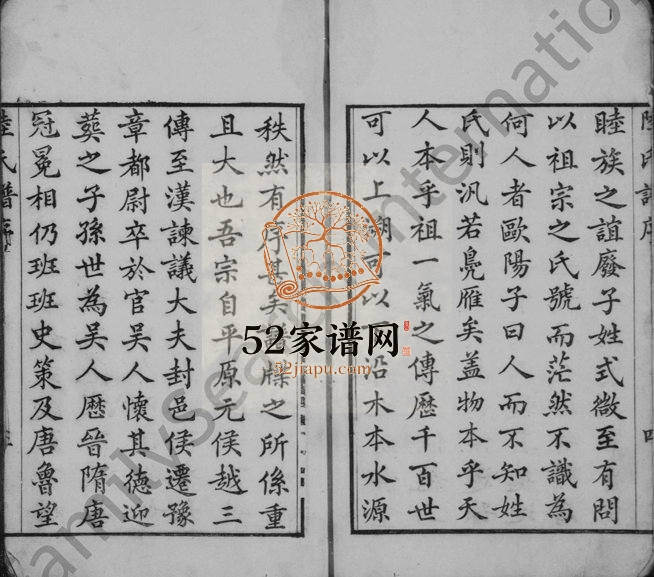 陸氏譜序
睦族之誼廢子姓式微至有問
以祖宗之氏號而茫然不識為
何人者歐陽子曰人而不知姓
氏則汎若鳧雁矣盖物本乎天
人本乎祖一氣之傳歷千百世
可以上溯可以沿木本水源
秩然有序甚矣牒之所係重
且大也吾宗自平原元侯越三
傳至漢諫議大夫封邑侯遷豫
章都尉卒於官吳人懷其德迎
葬之子孫世為吳人歷晉隋唐
冠冕相仍班班史策及唐魯望
陸氏譜序
52家谱网
52jiapu.com
FamilySearch International